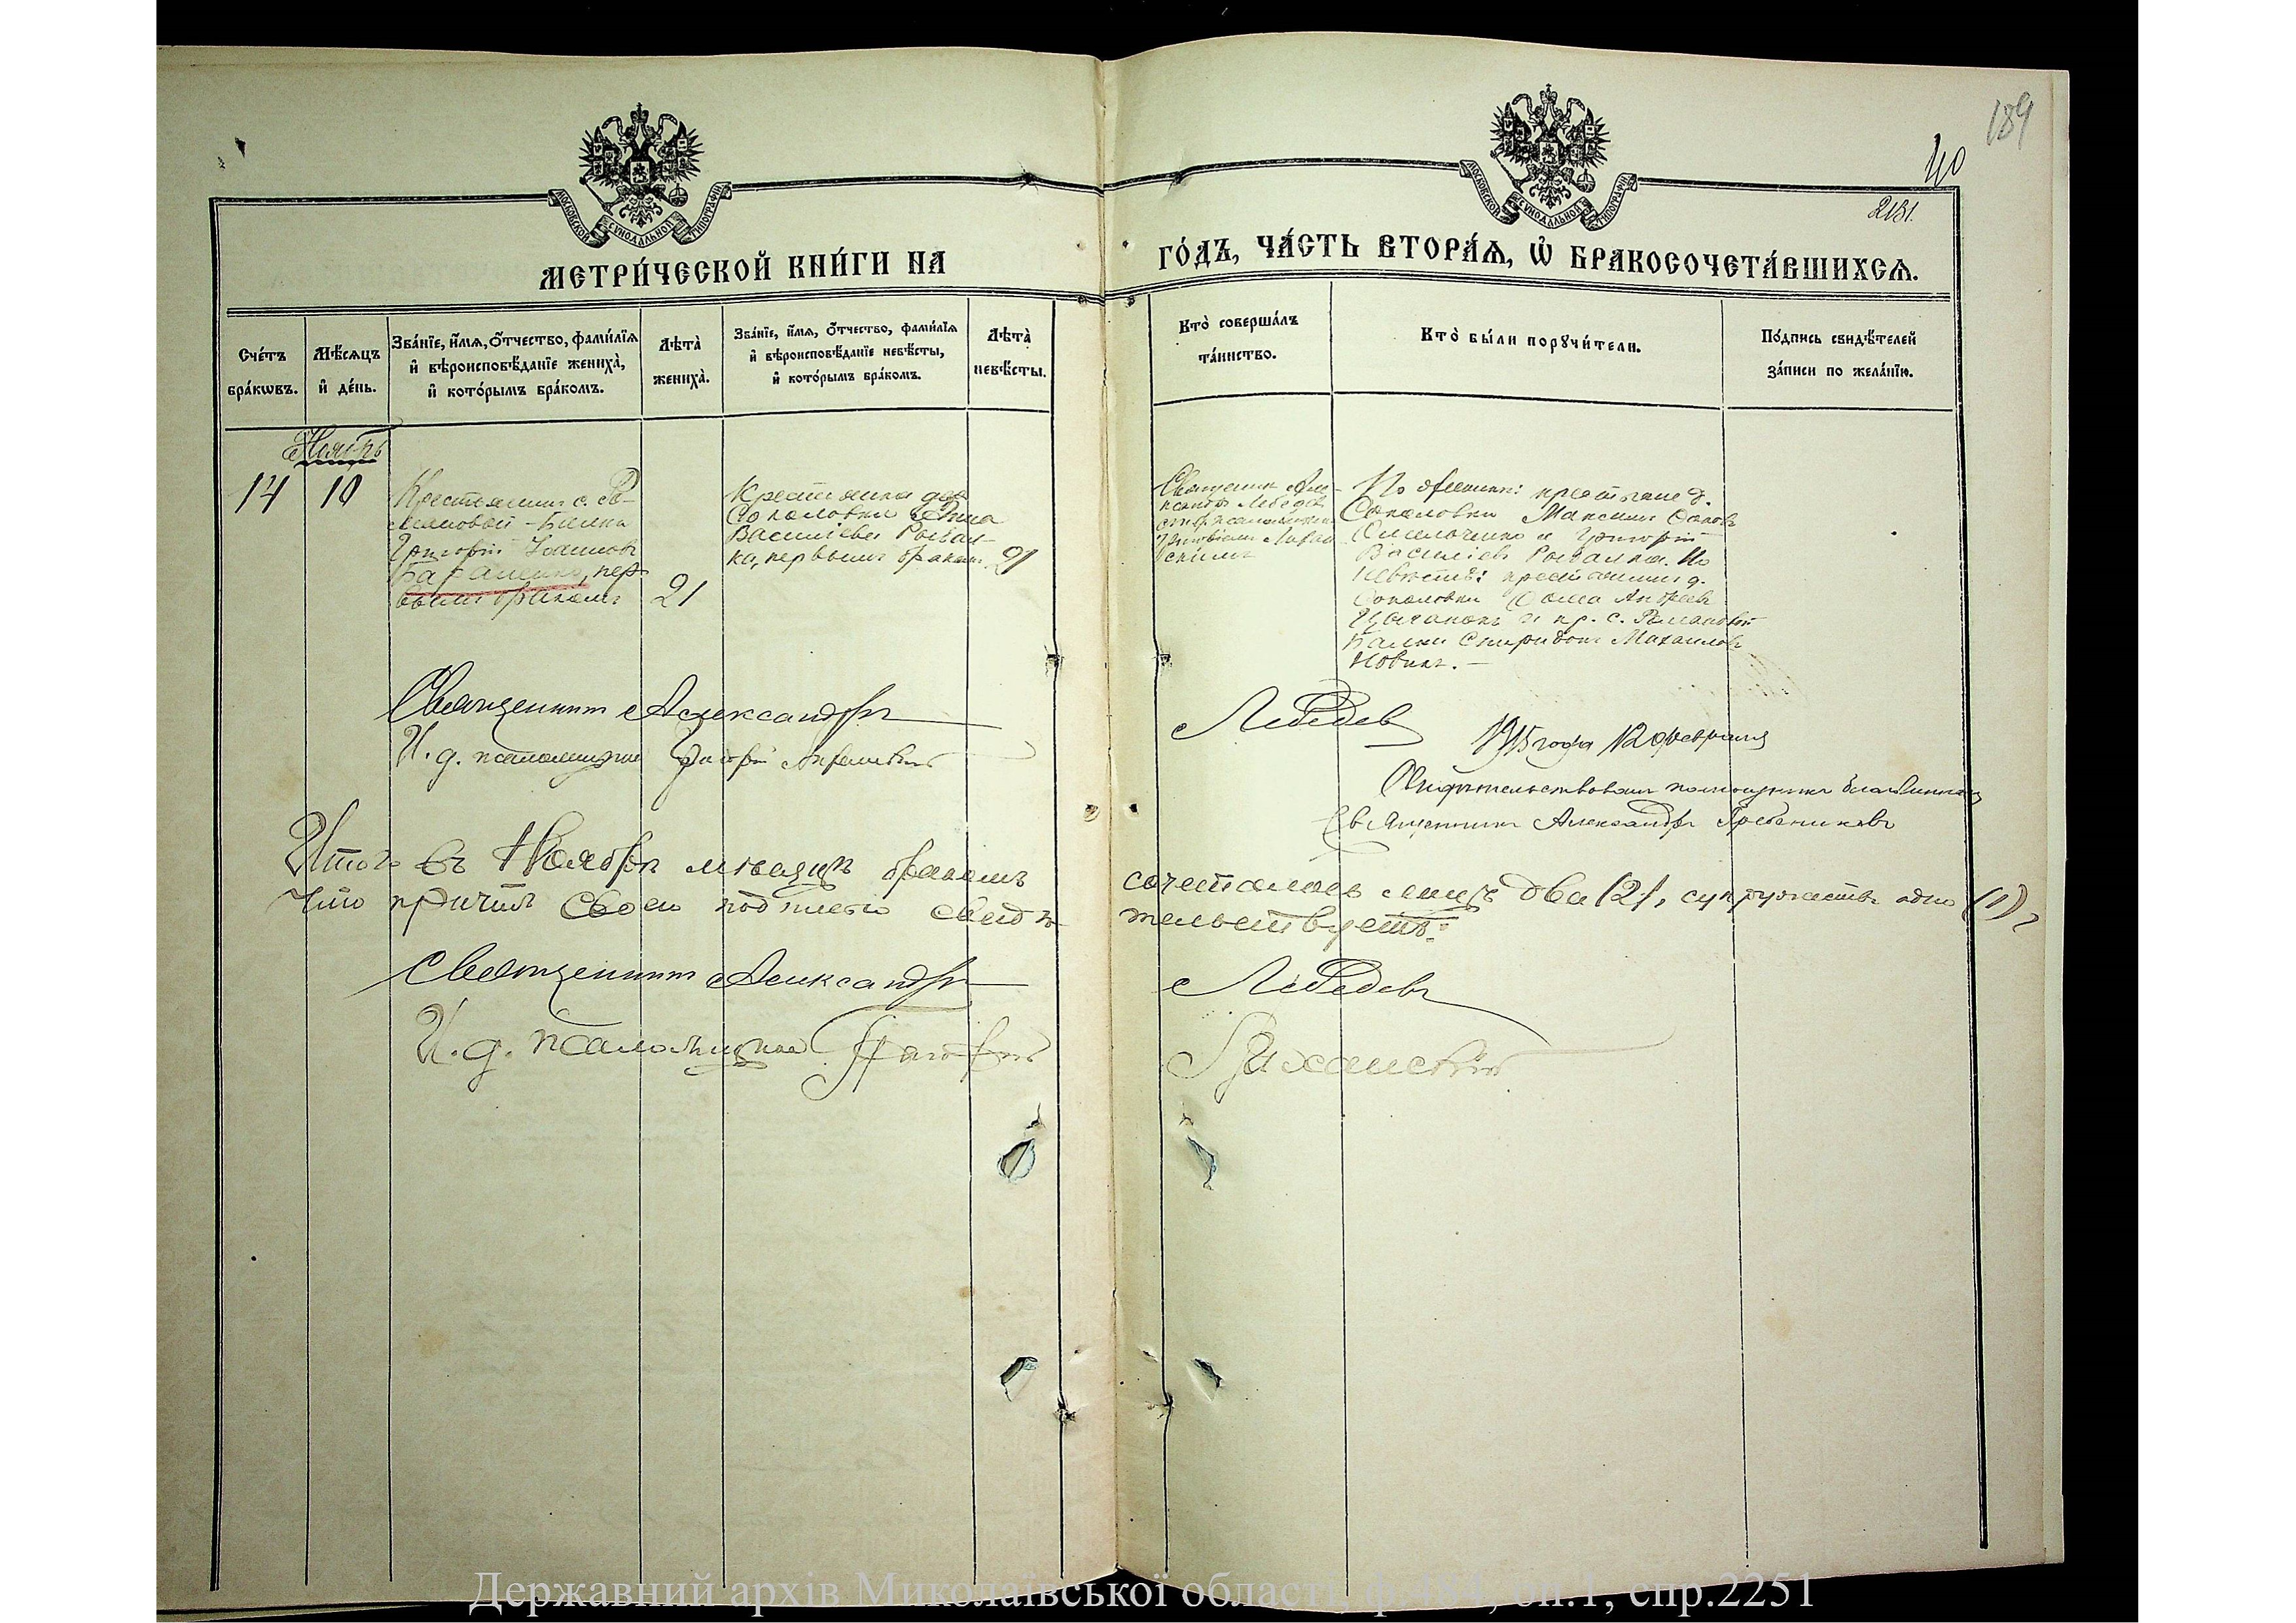 189
40
2131.
МОСКОВСКОЙ СУНОДАЛЬНОЙ ТИПОГРАФІИ
МОСКОВСКОЙ СУНОДАЛЬНОЙ ТИПОГРАФІИ
МЕТРИ́ЧЕСКОЙ КНИ́ГИ НА
ГО́ДЪ, ЧА́СТЬ ВТОРА́Я, Ѡ҆ БРАКОСОЧЕТА́ВШИХСЯ.
Сче́тъ
бра́кѡвъ.
Мѣ́сяцъ
и҆ де́нь.
Зва́нїе, и҆́мя, ѻ҆́тчество, фами́лїя
и҆ вѣроисповѣ́данїе жениха̀,
и҆ кото́рымъ бра́комъ.
Лѣта̀
жениха̀.
Зва́нїе, и҆́мя, ѻ҆́тчество, фами́лїя
и҆ вѣроисповѣ́данїе невѣ́сты,
и҆ кото́рымъ бра́комъ.
Лѣта̀
невѣ́сты.
Кто̀ соверша́лъ
та́инство.
Кто̀ бы́ли порꙋчи́тели.
По́дпись свидѣ́телей
за́писи по жела́нїю.
Ноябрь
14
10
Крестьянинъ с. Ро-
мановой-Балки
Григорій Іоанновъ
пер-
вымъ бракомъ
21
Крестьянка д.
Соколовки Анна
Васильева Рыбал-
ка, первымъ бракомъ.
21
Священникъ Але-
ксандръ Лебедев
По женихѣ: крестьяне д.
Соколовки Максимъ
и Григорій
Васильевъ Рыбалка. По
невѣстѣ: крестьянинъ д.
Соколовки Ѳома Андреевъ
и кр. с. Романовой
Балки Спиридонъ Михаиловъ
Новикъ. –
Священникъ Александръ
Лебедев
И. д. псаломщика Григорій
1915 года 12 февраля
Свидѣтельствовалъ помощникъ благочиннаго
Священникъ Александръ Гребенниковъ
Итого въ Ноябрѣ мѣсяцѣ бракомъ
сочеталось лицъ два (2), супружествъ одно (1),
Что причтъ своею подписью свидѣ-
тельствуетъ:
Священникъ Александръ
Лебедевъ
И. д. псаломщика Григорій
Державний архів Миколаївської області, ф.484, оп.1, спр.2251